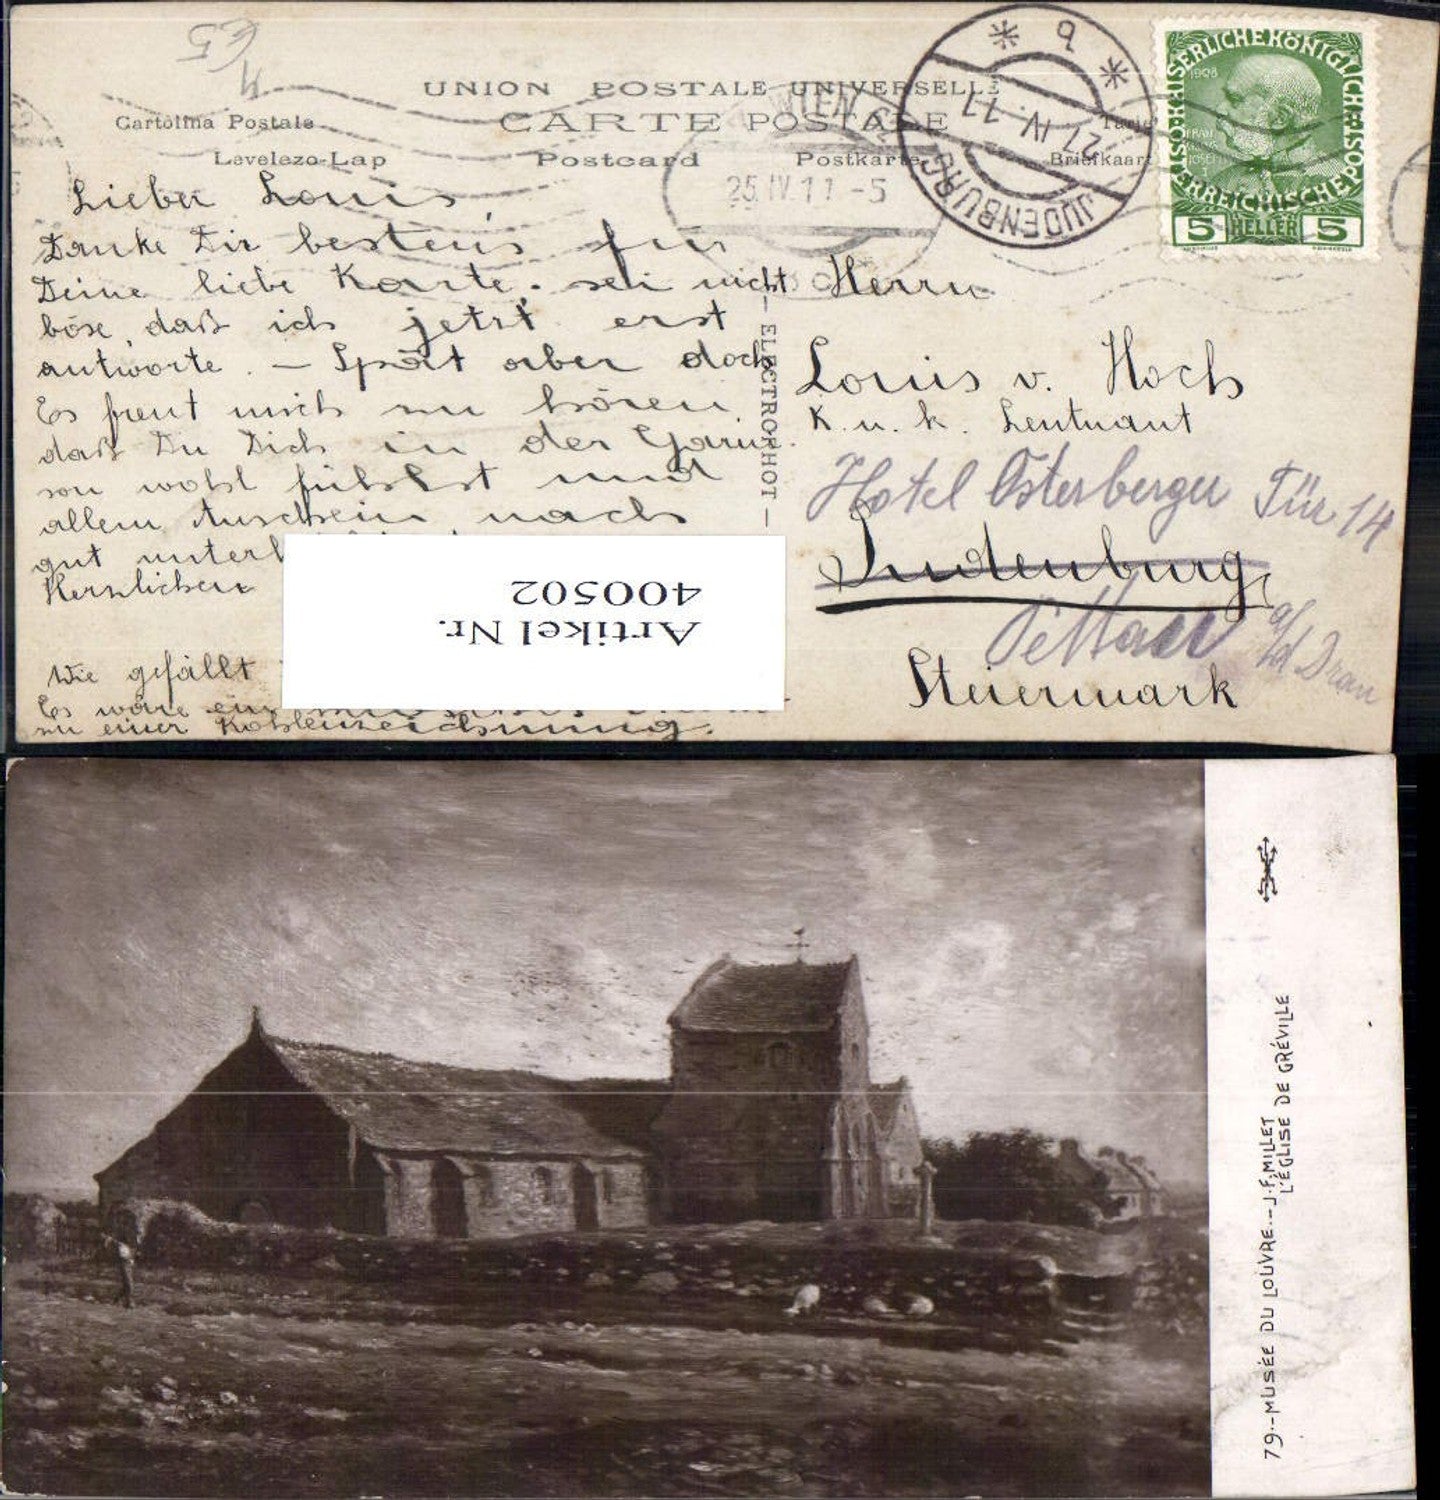 UNION POSTALE UNIVERSELLE
CARTE POSTALE
Cartolina Postale
Levelezo-Lap Postcard Postkarte Briefkaart
ELECTROPHOT
€5
WIEN
25.IV.11 -5
JUDENBURG
27 IV. 11
* b *
KAISERLICHE KÖNIGLICHE POST
ÖSTERREICHISCHE
1908
FRANZ
JOSEF I
5 HELLER 5
Lieber Louis,
Danke Dir bestens für
Deine liebe Karte. sei nicht
böse, daß ich jetzt erst
antworte. — Spät aber doch
Es freut mich zu hören,
daß Du Dich in der Garni-
son wohl fühlst und
allem Anschein nach
gut
Herzlichen
Wie gefällt
Es wäre ein
zu einer Kohlenzeichnung.
Herrn
Louis v. Hoch
K. u. k. Leutnant
Hotel Osterberger Tür 14
Judenburg
Pettau a/d Drau
Steiermark
Artikel Nr.
400502
79.-MUSÉE DU LOUVRE.-J.F. MILLET
L'ÉGLISE DE GRÉVILLE